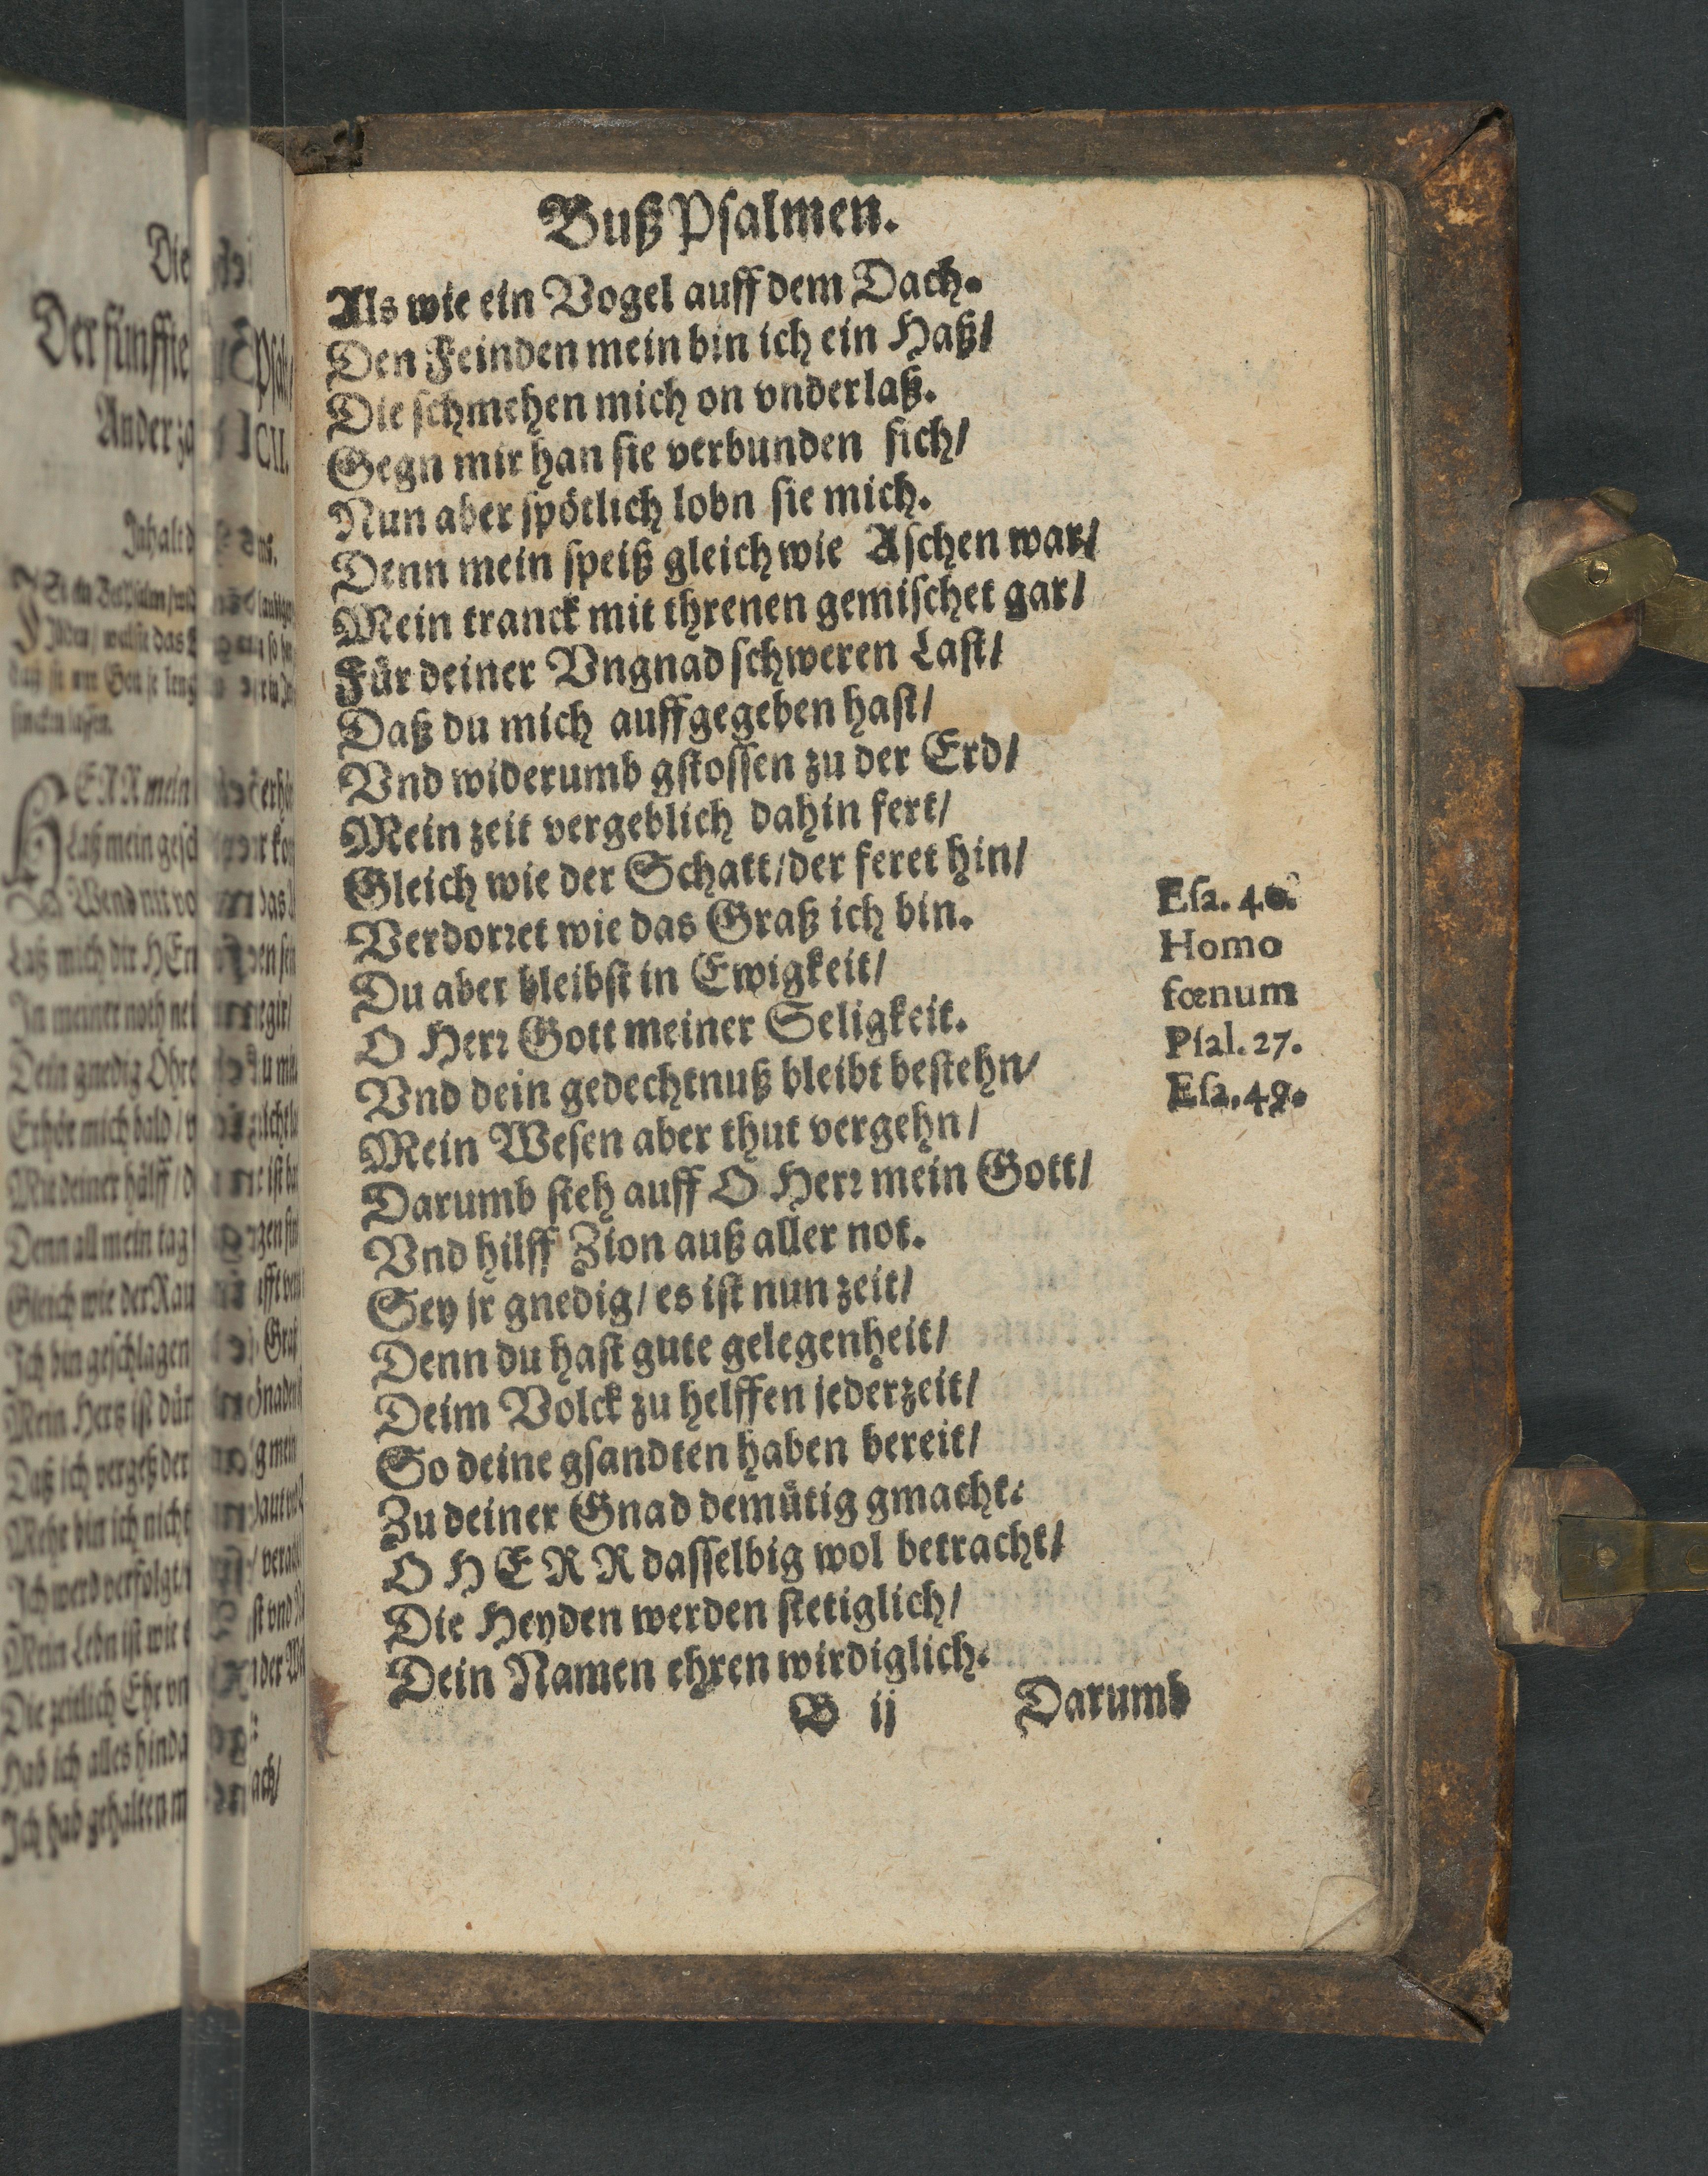 Buß Psalmen.
Als wie ein Vogel auff dem Dach.
Den Feinden mein bin ich ein Haß/
Die schmehen mich on vnderlaß.
Gegn mir han sie verbunden sich/
Nun aber spötlich lobn sie mich.
Denn mein speiß gleich wie Aschen war/
Mein tranck mit threnen gemischet gar/
Für deiner Vngnad schweren Last/
Daß du mich auffgegeben hast/
Vnd widerumb gstossen zu der Erd/
Mein zeit vergeblich dahin fert/
Gleich wie der Schatt/der feret hin/
Verdorret wie das Graß ich bin.
Du aber bleibst in Ewigkeit/
O Herr Gott meiner Seligkeit.
Vnd dein gedechtnuß bleibt bestehn/
Mein Wesen aber thut vergehn/
Darumb steh auff O Herr mein Gott/
Vnd hilff Zion auß aller not.
Sey ir gnedig/ es ist nun zeit/
Denn du hast gute gelegenheit/
Deim Volck zu helffen jederzeit/
So deine gsandten haben bereit/
Zu deiner Gnad demütig gmacht:
O HERR dasselbig wol betracht/
Die Heyden werden stetiglich/
Dein Namen ehren wirdiglich.
B ij Darumb
Esa. 40.
Homo
fœnum
Psal. 27.
Esa. 49.
Die
Der fünffte
Psal/
CII.
HERR mein
Laß mein
Wend nit
Laß mich dir HErr
In meiner noth
Dein gnedig Ohre
Erhör mich bald/
Mit deiner hülff/
Denn all mein tag
Gleich wie der Rau
Ich bin geschlagen
Mein Hertz ist dür
Daß ich vergeß der
Mehr bin ich nicht
Ich werd verfolgt
Mein Lebn ist wie
Die zeitlich Ehr
Hab ich alles hinda
Ich hab gehalten